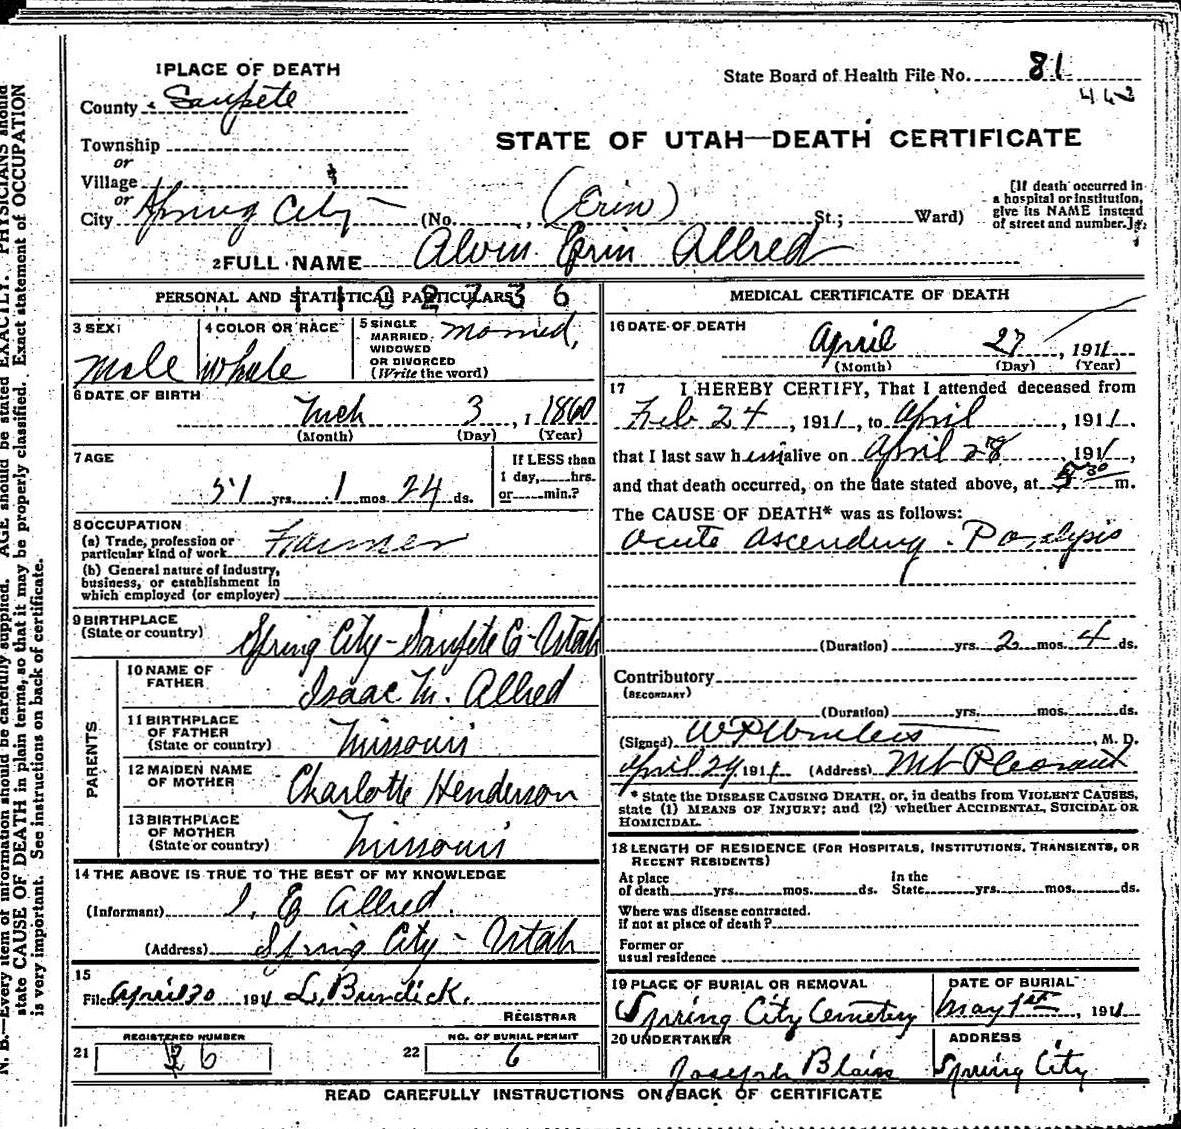 1 PLACE OF DEATH
State Board of Health File No. 81
County Sanpete
442
STATE OF UTAH—DEATH CERTIFICATE
Township
or
Village
or
City Spring City (No. (Erin) St.; Ward)
[If death occurred in a hospital or institution, give its NAME instead of street and number.]
2 FULL NAME Alvin Erin Allred
PERSONAL AND STATISTICAL PARTICULARS
1102736
3 SEX: Male
4 COLOR OR RACE White
5 SINGLE MARRIED, WIDOWED OR DIVORCED (Write the word) Married,
6 DATE OF BIRTH
Mch 3, 1860
(Month) (Day) (Year)
7 AGE
51 yrs. 1 mos. 24 ds.
If LESS than 1 day, hrs. or min.?
8 OCCUPATION
(a) Trade, profession or particular kind of work Farmer
(b) General nature of industry, business, or establishment in which employed (or employer)
9 BIRTHPLACE (State or country) Spring City - Sanpete Co - Utah
PARENTS
10 NAME OF FATHER Isaac M. Allred
11 BIRTHPLACE OF FATHER (State or country) Missouri
12 MAIDEN NAME OF MOTHER Charlotte Henderson
13 BIRTHPLACE OF MOTHER (State or country) Missouri
14 THE ABOVE IS TRUE TO THE BEST OF MY KNOWLEDGE
(Informant) I. E Allred.
(Address) Spring City - Utah
15
Filed April 30 1911 L. Burdick.
REGISTRAR
21 REGISTERED NUMBER 26
22 NO. OF BURIAL PERMIT 6
MEDICAL CERTIFICATE OF DEATH
16 DATE OF DEATH
April 27, 1911
(Month) (Day) (Year)
17 I HEREBY CERTIFY, That I attended deceased from
Feb 24, 1911, to April, 1911.
that I last saw him alive on April 28, 1911,
and that death occurred, on the date stated above, at 5 30 m.
The CAUSE OF DEATH* was as follows:
Acute Ascending Paralysis
(Duration) yrs. 2 mos. 4 ds.
Contributory
(SECONDARY)
(Duration) yrs. mos. ds.
(Signed) M. D.
April 29, 1911 (Address) Mt Pleasant
* State the DISEASE CAUSING DEATH, or, in deaths from VIOLENT CAUSES, state (1) MEANS OF INJURY; and (2) whether ACCIDENTAL, SUICIDAL OR HOMICIDAL.
18 LENGTH OF RESIDENCE (FOR HOSPITALS, INSTITUTIONS, TRANSIENTS, OR RECENT RESIDENTS)
At place of death yrs. mos. ds. In the State yrs. mos. ds.
Where was disease contracted. if not at place of death?
Former or usual residence
19 PLACE OF BURIAL OR REMOVAL
Spring City Cemetery
DATE OF BURIAL
May 1st, 1911
20 UNDERTAKER
Joseph Blain
ADDRESS
Spring City
READ CAREFULLY INSTRUCTIONS ON BACK OF CERTIFICATE
N. B.—Every item of information should be carefully supplied. AGE should be stated EXACTLY. PHYSICIANS should
state CAUSE OF DEATH in plain terms, so that it may be properly classified. Exact statement of OCCUPATION
is very important. See instructions on back of certificate.